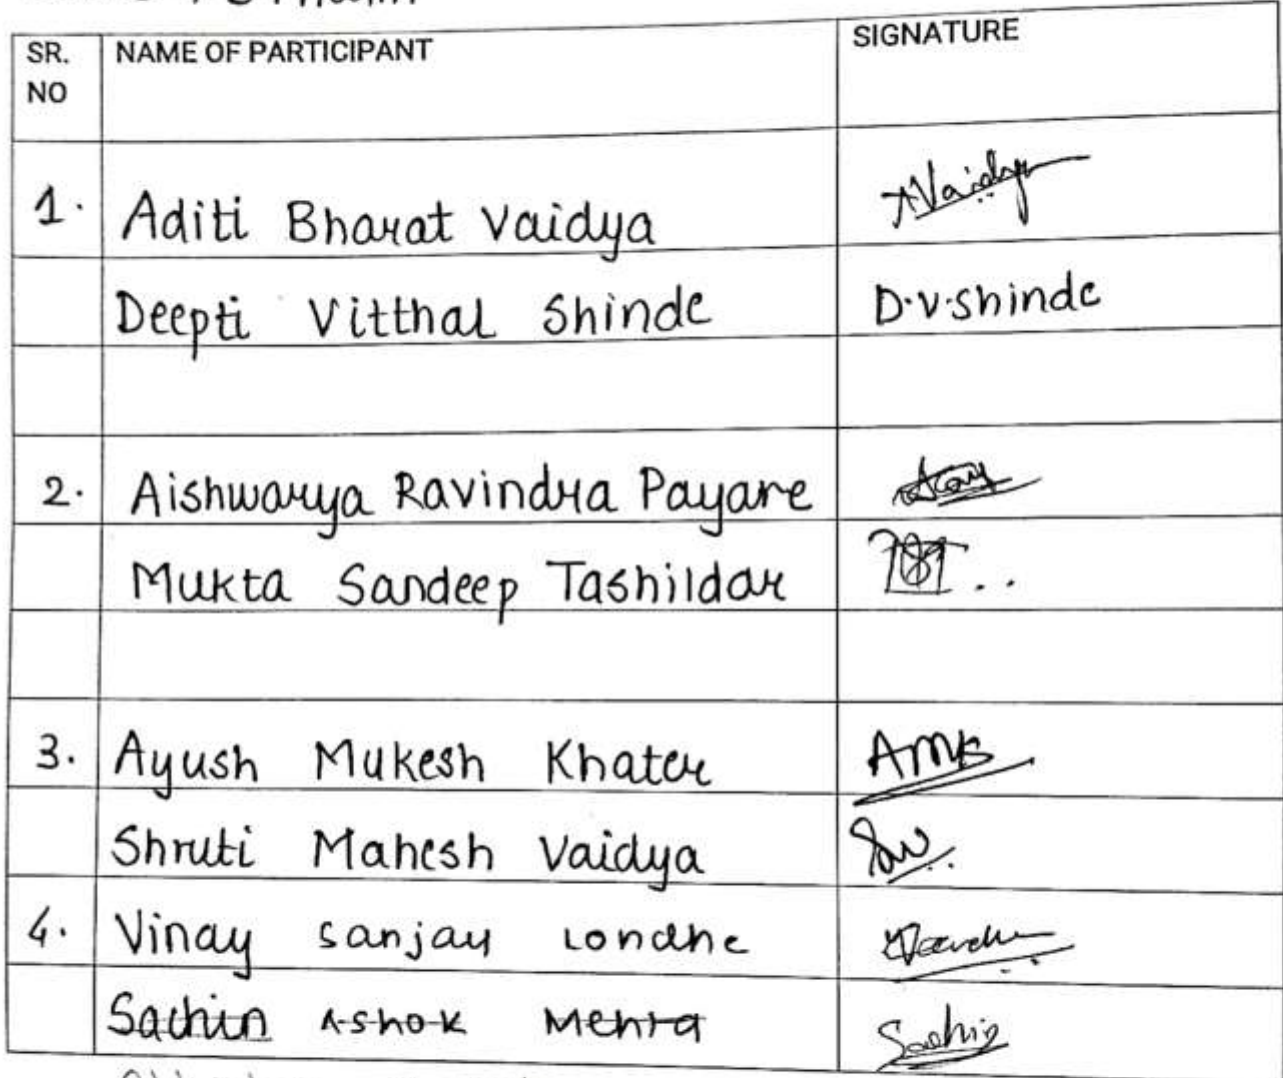 SR. NO NAME OF PARTICIPANT SIGNATURE
1. Aditi Bharat Vaidya AVaidya
Deepti Vitthal Shinde D.V.Shinde
2. Aishwarya Ravindra Payare
Mukta Sandeep Tashildar
3. Ayush Mukesh Khater AMK
Shruti Mahesh Vaidya
4. Vinay Sanjay Londhe
Sachin Ashok Mehta Sachin